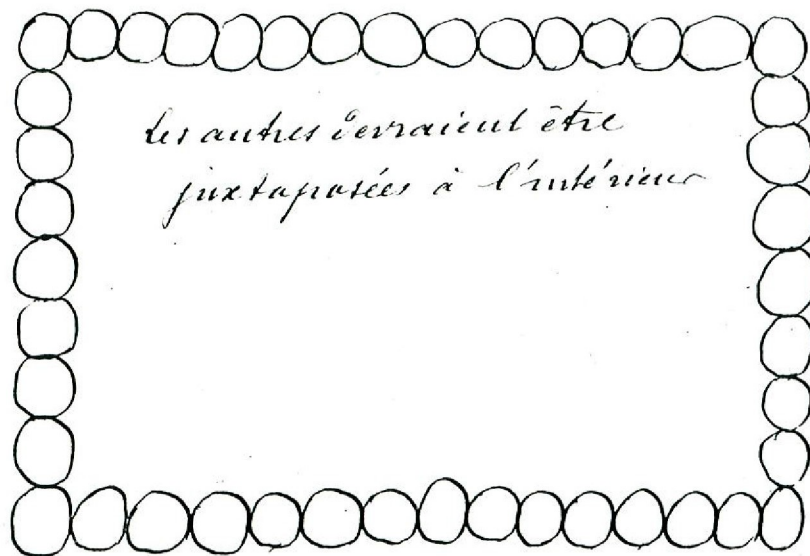 les autres devraient être
juxtaposées à l'intérieur